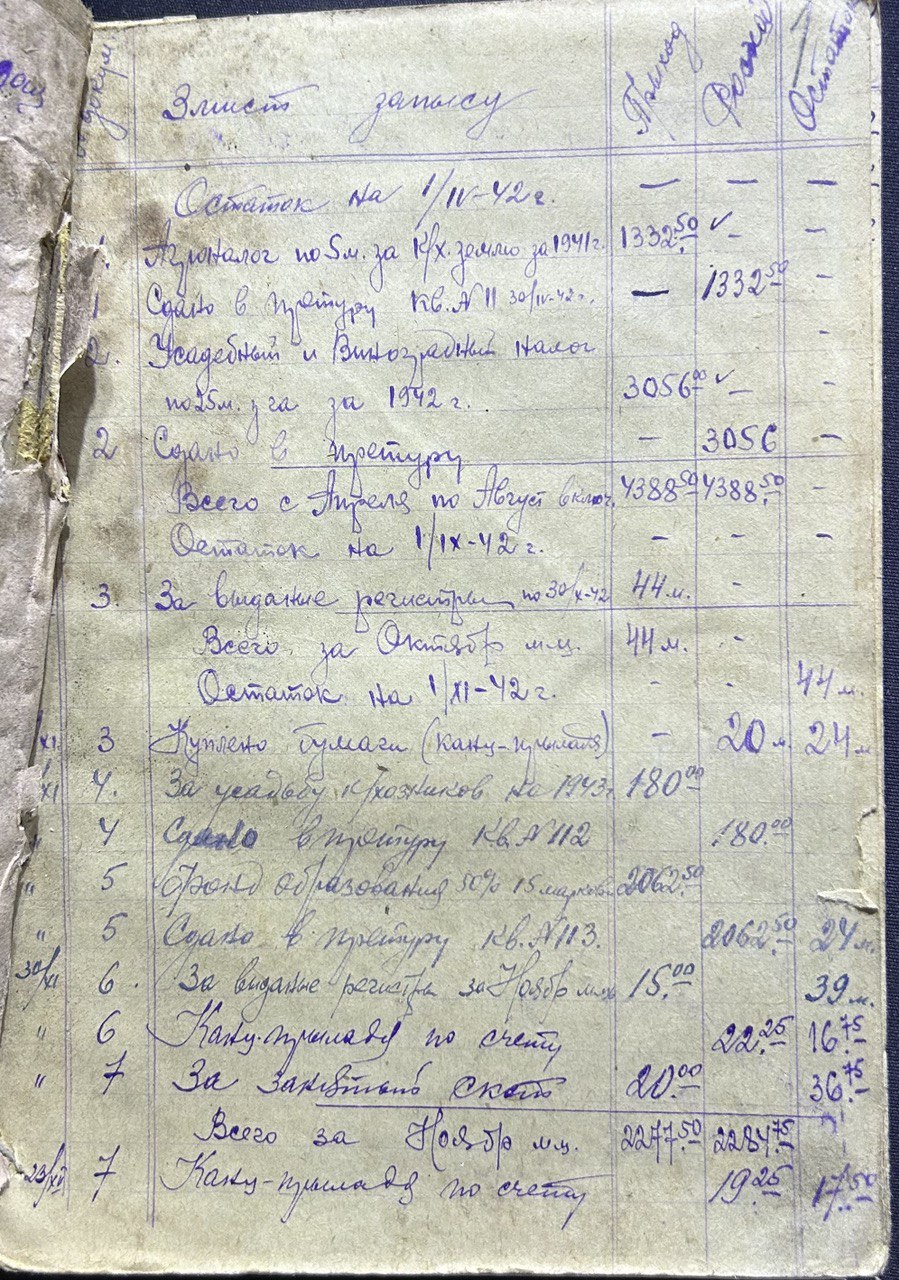 докум. Змист запысу Приход Расход Остаток
Остаток на 1/IV-42 г. — — —
1. Агроналог по 5 м. за К/х. землю за 1941 г. 1332.50 ✓ - -
1 Сдано в претуру Кв. № 11 30/IV-42 г. — 1332.50 -
2. Усадебный и Виноградный налог -
по 25 м. з га за 1942 г. 3056.00 ✓ - -
2 Сдано в претуру - 3056 -
Всего с Апреля по Август включ. 4388.50 4388.50 -
Остаток на 1/IX-42 г. - - -
3. За выданые регистры по 30/X-42 44 м. -
Всего за Октябр м-ц. 44 м. -
Остаток на 1/XI-42 г. - - 44 м.
XI 3 Куплено бумаги (канц-прыладя) - 20 м. 24 м
XI 4. За усадьбу к/хозников на 1943 г. 180.00
" 4 Сдано в претуру Кв. № 112 180.00
" 5 Фонд образования 50% 15 марковый 2062.50
" 5 Сдано в претуру Кв. № 113. 2062.50 24 м.
30/XI 6. За выданые регистры за Ноябр м-ц 15.00 39 м.
" 6 Канц-прыладя по счету 22.25 16.75
" 7 За заклятый скот 20.00 36.75
Всего за Ноябр м-ц. 2277.50 2284.75
23/XII 7 Канц-прыладя по счету 19.25 17.50